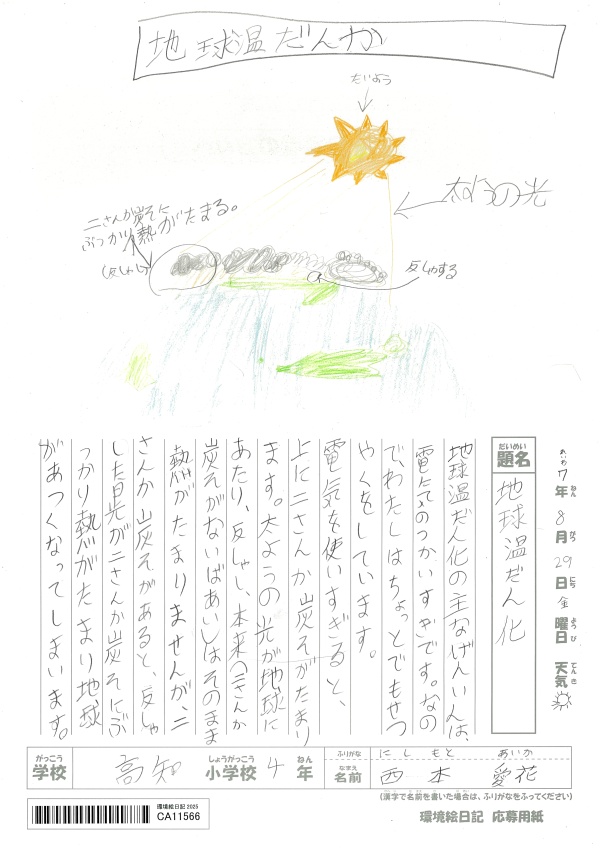 地球温だんか
たいよう
太ようの光
二さんか炭そに
ぶつかり熱がたまる。
反しゃ
反しゃする
れいわ7年8月29日金曜日 天気
題名
地球温だん化
地球温だん化の主なげんいんは、
電気のつかいすぎです。なの
で、わたしはちょっとでもせつ
やくをしています。
電気を使いすぎると、
上に二さんか炭そがたまり
ます。太ようの光が地球に
あたり、反しゃし、本来(二さんか
炭そがないばあい)はそのまま
熱がたまりませんが、二
さんか炭そがあると、反しゃ
した日光が二さんか炭そにぶ
つかり熱がたまり地球
があつくなってしまいます。
がっこう
学校 高知 小学校 4年
しょうがっこう
ねん
ふりがな にしもと あいか
なまえ
名前 西本 愛花
(漢字で名前を書いた場合は、ふりがなをふってください)
環境絵日記 2025
CA11566
環境絵日記 応募用紙